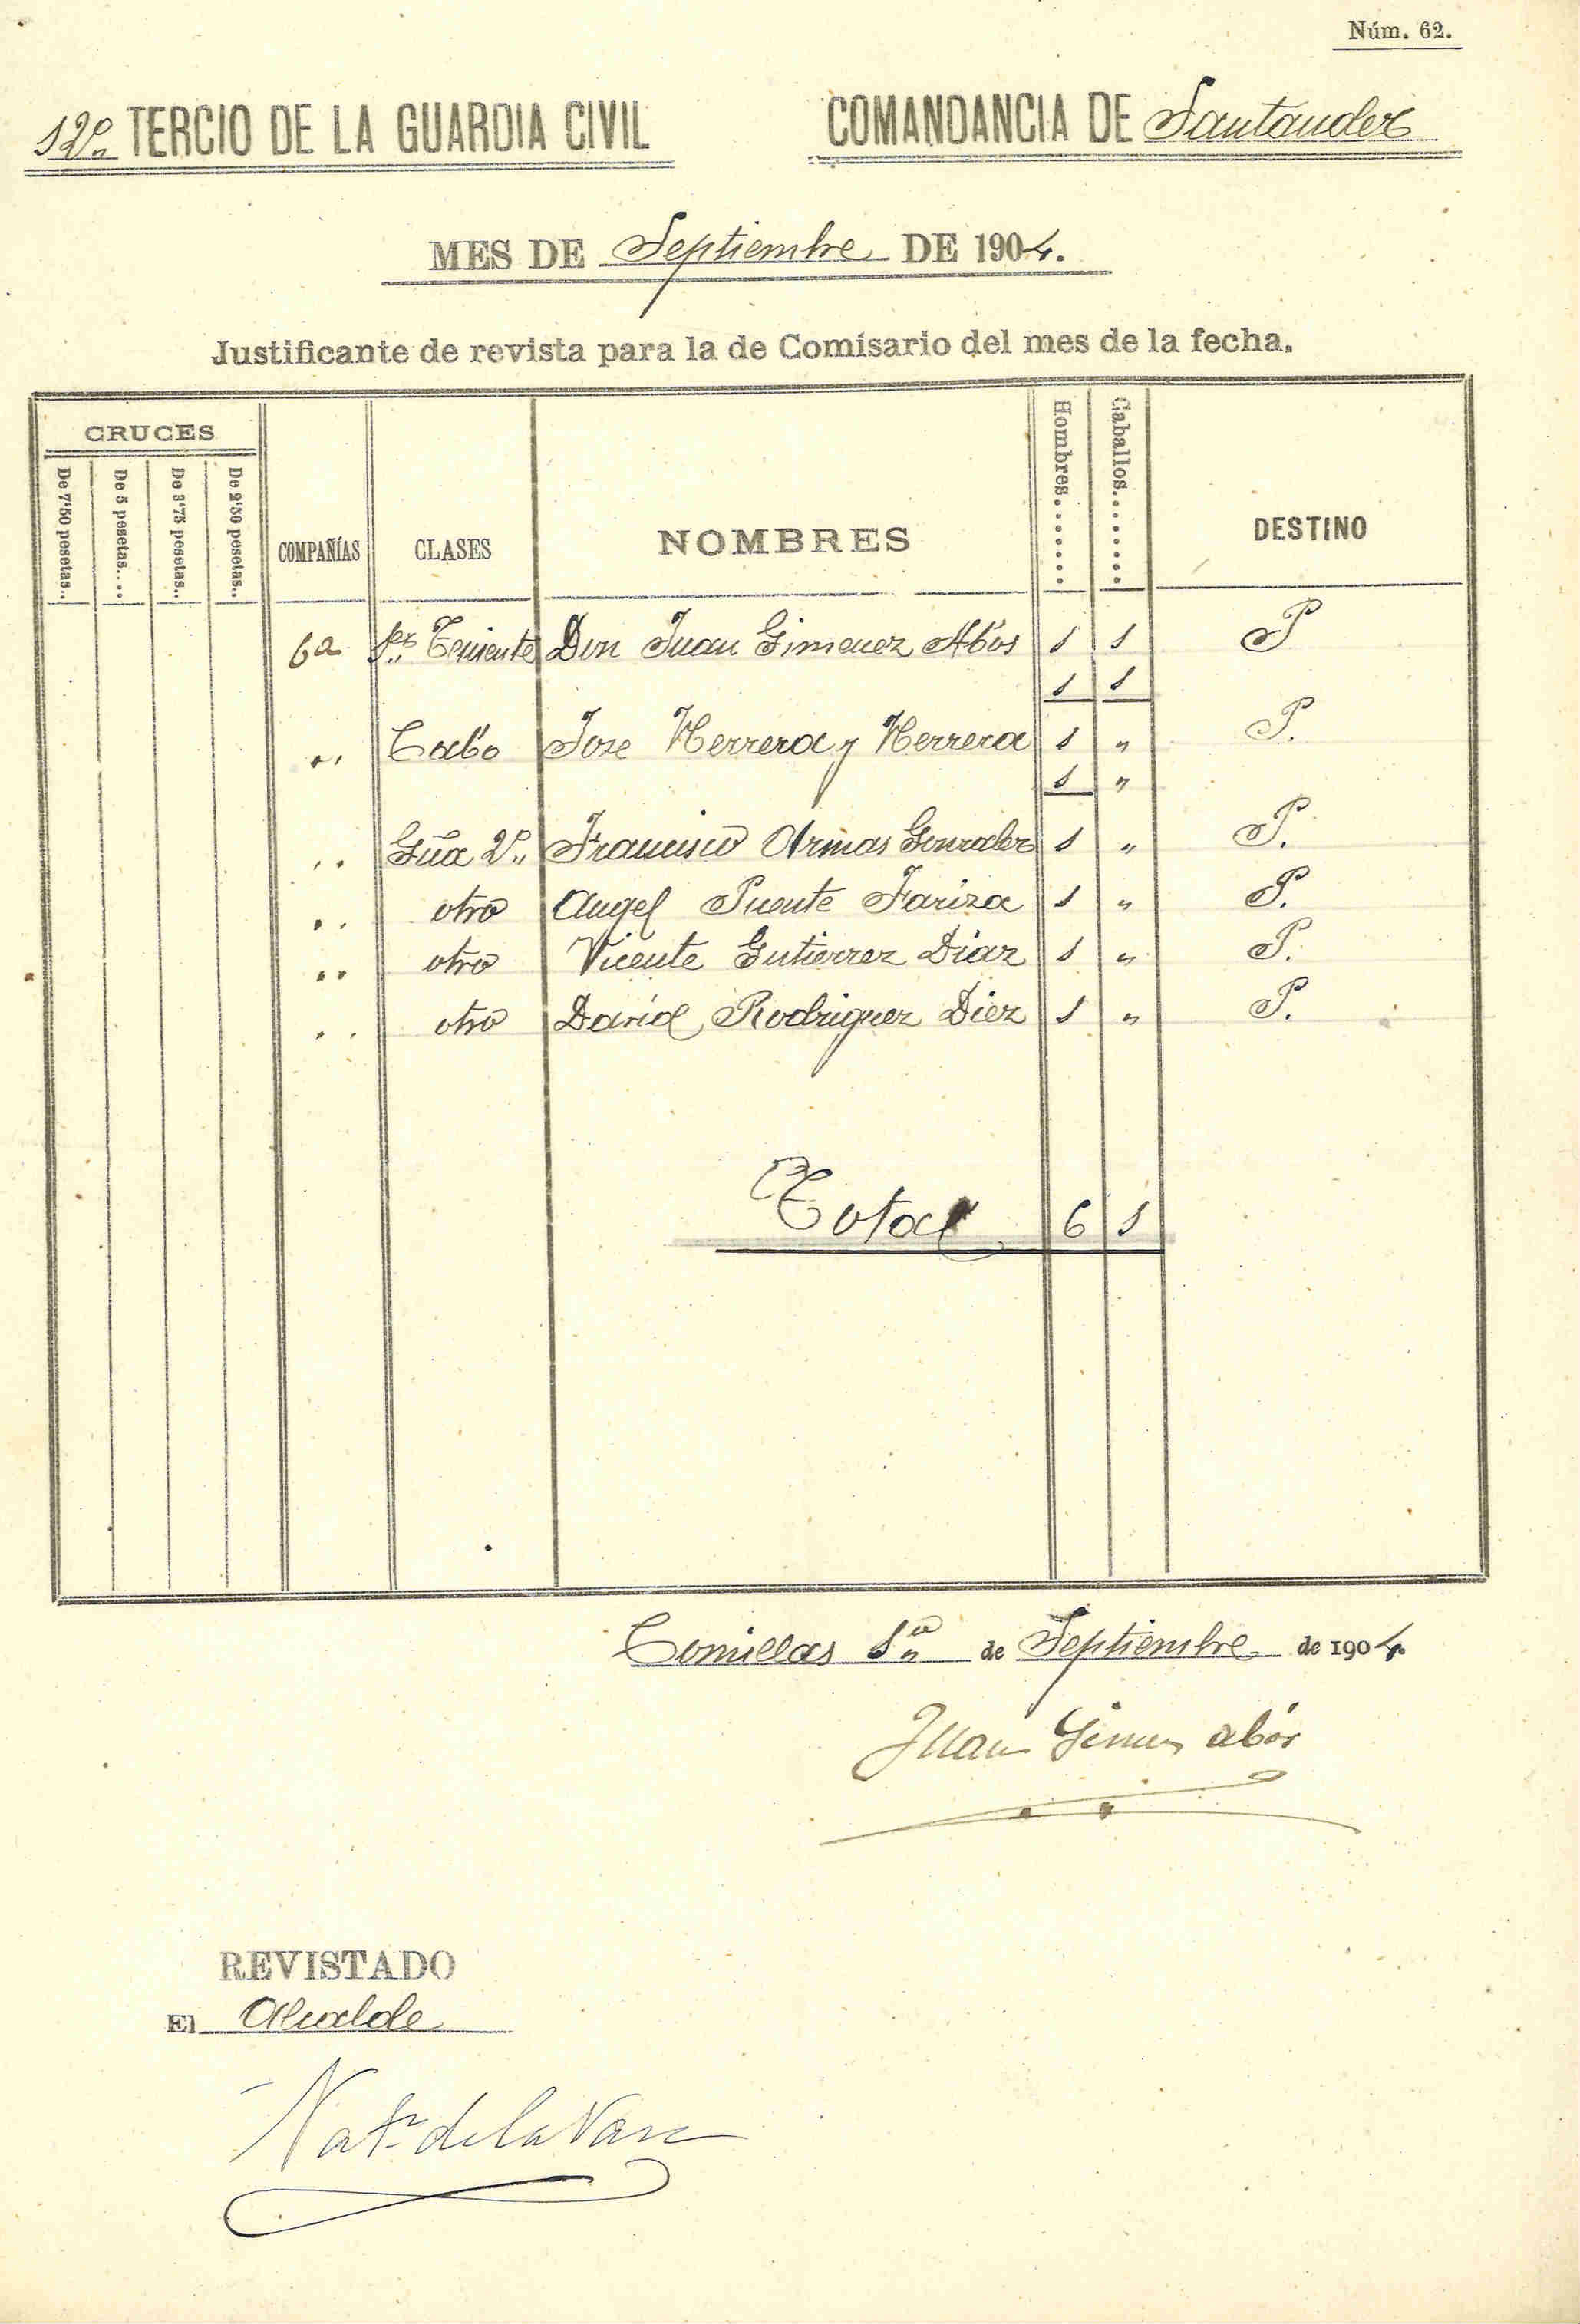 Núm. 62.
12º TERCIO DE LA GUARDIA CIVIL COMANDANCIA DE Santander
MES DE Septiembre DE 1904.
Justificante de revista para la de Comisario del mes de la fecha.
CRUCES
De 7'50 pesetas..
De 5 pesetas....
De 3'75 pesetas..
De 2'50 pesetas..
COMPAÑÍAS
CLASES
NOMBRES
Hombres.......
Caballos........
DESTINO
6ª 1er Teniente Don Juan Gimenez Abós 1 1 P
1 1
" Cabo Jose Herrera y Herrera 1 " P.
1 "
" Gũa 2º Francisco Armas Gonzalez 1 " P.
" otro Angel Puente Fariza 1 " P.
" otro Vicente Gutierrez Diaz 1 " P.
" otro David Rodriguez Diez 1 " P.
Total 6 1
Comillas 1º de Septiembre de 1904.
Juan Gimenez abós
REVISTADO
El Alcalde
de la